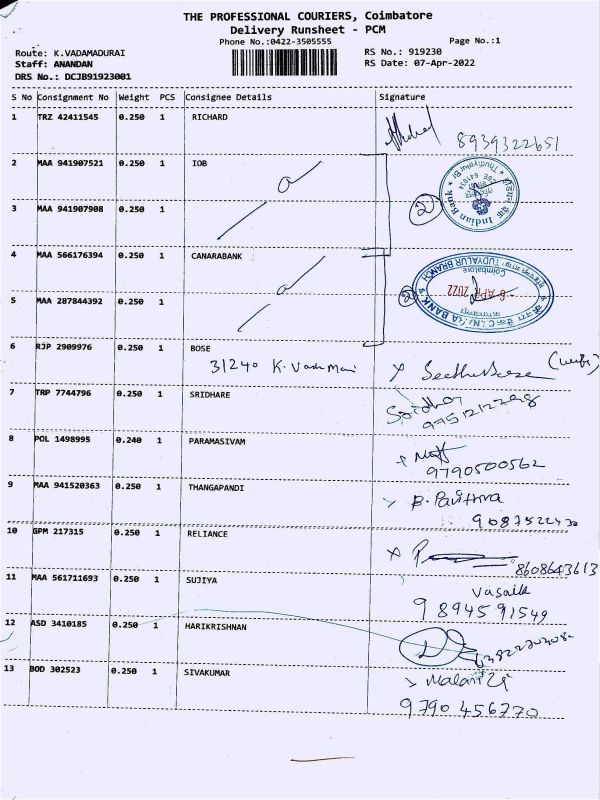 THE PROFESSIONAL COURIERS, Coimbatore
Delivery Runsheet - PCM
Phone No.:0422-3505555
Page No.:1
Route: K.VADAMADURAI
RS No.: 919230
Staff: ANANDAN
RS Date: 07-Apr-2022
DRS No.: DCJB91923001
S No Consignment No Weight PCS Consignee Details Signature
1 TRZ 42411545 0.250 1 RICHARD
8939322651
2 MAA 941907521 0.250 1 IOB
Indian Bank
2
3 MAA 941907908 0.250 1
4 MAA 566176394 0.250 1 CANARABANK
TUDYALUR BRANCH
Coimbatore
6 APR 2022
2
CANARA BANK
5 MAA 287844392 0.250 1
6 RJP 2909976 0.250 1 BOSE
31240 K. Vada
(wife)
7 TRP 7744796 0.250 1 SRIDHARE
Sridhar
8 POL 1498995 0.240 1 PARAMASIVAM
9790500562
9 MAA 941520363 0.250 1 THANGAPANDI
B. Pavithra
10 GPM 217315 0.250 1 RELIANCE
8608643613
11 MAA 561711693 0.250 1 SUJIYA
9894591549
12 ASD 3410185 0.250 1 HARIKRISHNAN
13 BOD 302523 0.250 1 SIVAKUMAR
9790456770